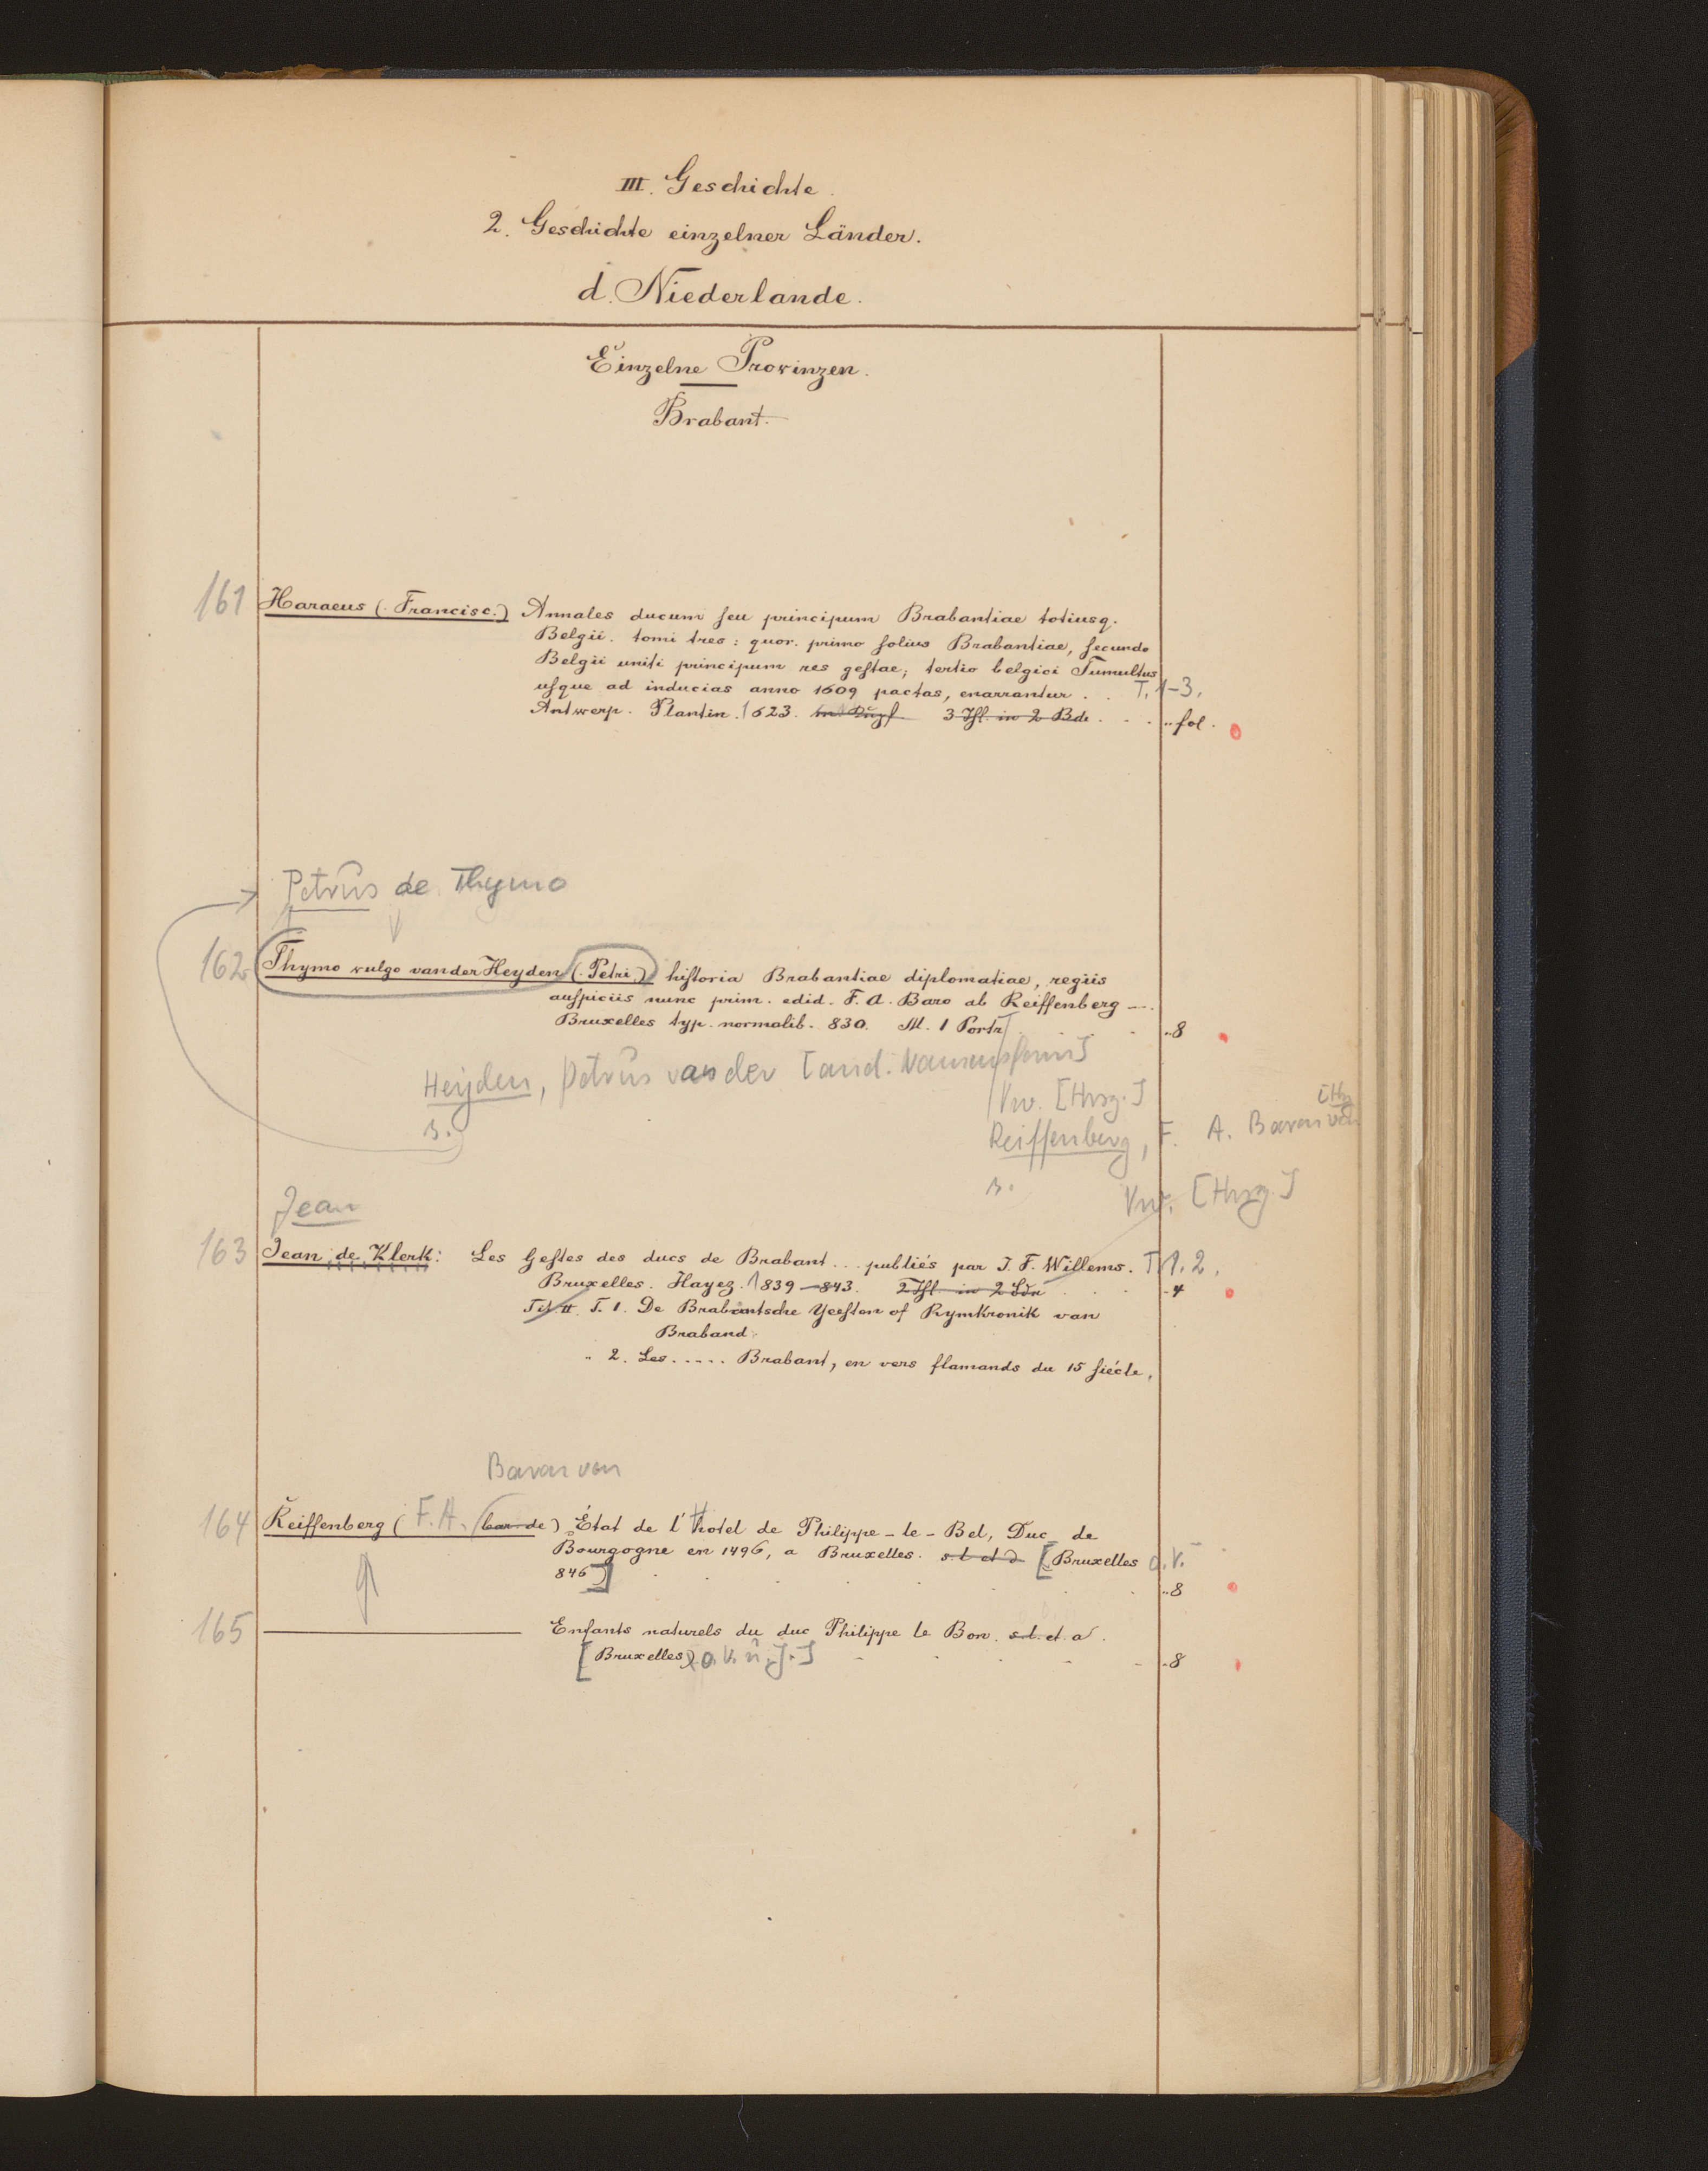 III. Geschichte.
2. Geschichte einzelner Länder.
d. Niederlande.
Einzelne Provinzen.
Brabant.
161 Haraeus (Francisc.) Annales ducum seu principum Brabantiae totiusq.
Belgii. tomi tres: quor. primo solius Brabantiae, secundo
Belgii uniti principum res gestae; tertio belgici Tumultus
usque ad inducias anno 1609 pactas, enarrantur . . T. 1-3.
Antwerp. Plantin. 1623. 3 Thl. in 2 Bde . . . .. fol.
Petrus de Thymo
162 Thymo vulgo vander Heyden (Petri) historia Brabantiae diplomatiae, regiis
auspiciis nunc prim. edid. F. A. Baro ab Reiffenberg —.
Bruxelles typ. normalib. 830. M. 1 Portr. .. 8
Heyden, Petrus van der [and. Namensform]
s.
Vw. [Hrsg.]
Reiffenberg, F. A. Baron von
s.
Jean
Vw. [Hrsg.]
163 Jean de Klerk: Les Gestes des ducs de Brabant... publiés par J. F. Willems. T. 1. 2.
Bruxelles. Hayez. 1839—843. 2 Thl in 2 Bdn . . . 4
Tit. T. 1. De Brabantsche Yeesten of Rymkronik van
Braband.
" 2. Les ..... Brabant, en vers flamands du 15 siécle,
Baron von
164 Reiffenberg (F. A. bar. de) État de l'Hotel de Philippe-le-Bel, Duc de
Bourgogne en 1496, a Bruxelles. s. l. et a [Bruxelles o. V.
846] .. 8
165 ——— Enfants naturels du duc Philippe le Bon. s. l. et. a.
[Bruxelles) o. V. u. J.] . 8